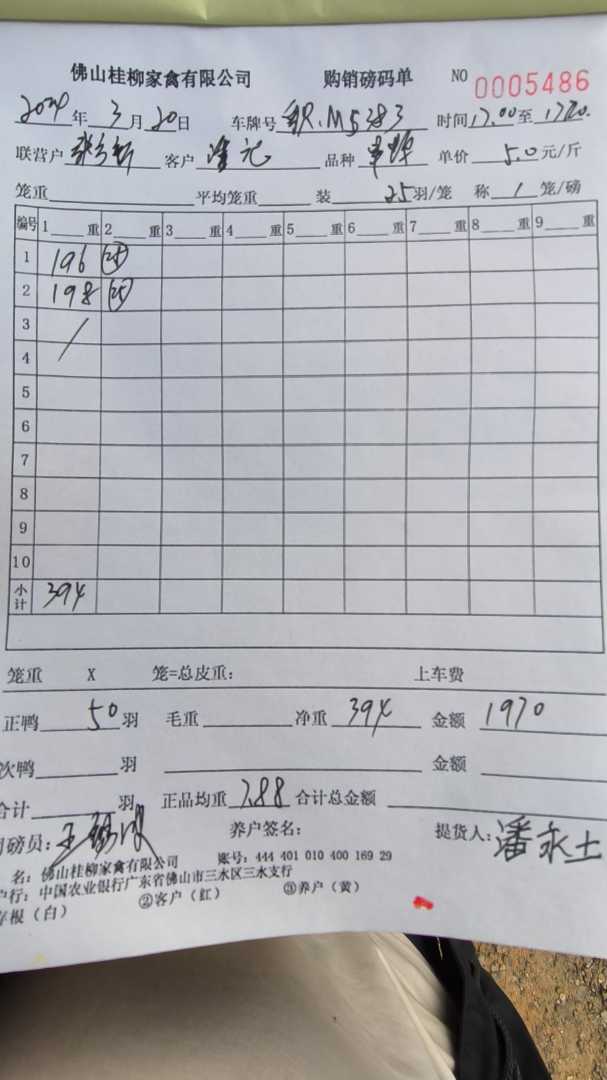 佛山桂柳家禽有限公司 购销磅码单 NO 0005486
2024年3月20日 车牌号 M5283 时间17.00至1720.
联营户 客户 品种 单价 5.0 元/斤
笼重 平均笼重 装 25 羽/笼 称 1 笼/磅
编号 1 重 2 重 3 重 4 重 5 重 6 重 7 重 8 重 9 重
1 196 25
2 198 25
3 /
4
5
6
7
8
9
10
小计 394
笼重 X 笼=总皮重： 上车费
正鸭 50 羽 毛重 净重 394 金额 1970
次鸭 羽 金额
合计 羽 正品均重 7.88 合计总金额
司磅员： 养户签名： 提货人：潘永土
名：佛山桂柳家禽有限公司 账号：444 401 010 400 169 29
户行：中国农业银行广东省佛山市三水区三水支行
存根（白） ②客户（红） ③养户（黄）